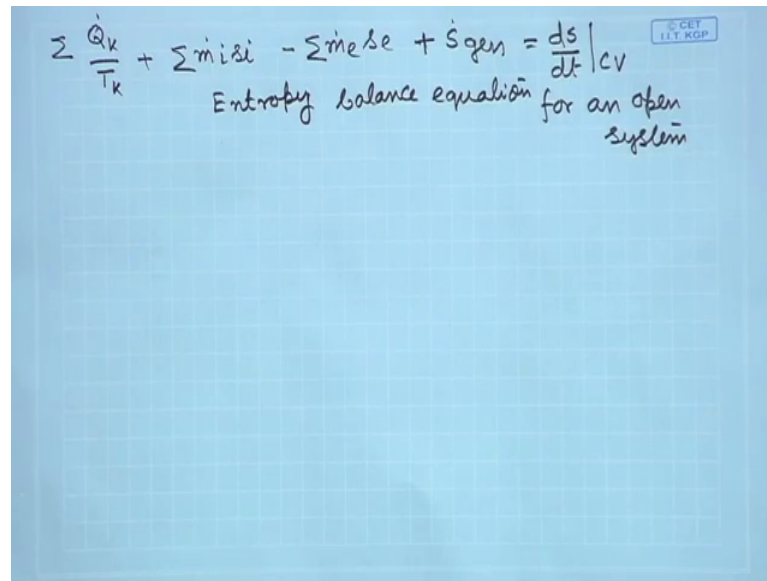 Σ Q̇k/Tk + Σṁisi - Σṁese + Ṡgen = ds/dt|cv
© CET
I.I.T. KGP
Entropy balance equation for an open
system